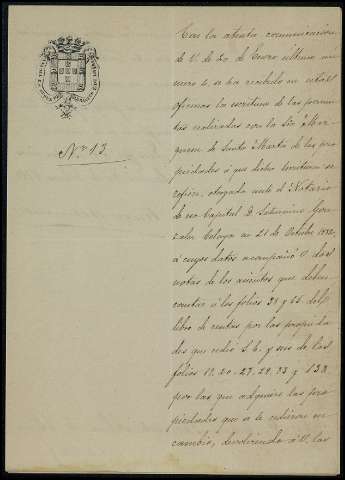 Nº 13.
Con la atenta comunicacion
de V. de 20 de Enero último nú-
mero 4, se ha recibido en estas
oficinas la escritura de las permu-
tas realizadas con la Sra. Mar-
quesa de Santa Marta de las pro-
piedades á que dicha escritura se
refiere, otorgada ante el Notario
de esa Capital D. Saturnino Gon-
zalez Celaya en 21 de Octubre 1872,
á cuyos datos acompañó V. dos
notas de los asientos que deben
á los folios 38 y 56 del
libro de rentas por las propieda-
des que cedió S. E. y seis de las
folios 19, 20, 27, 29, 33 y 138
por las que adquiere las pro-
piedades que se le cedieron en
cambio, devolviendo á V. las